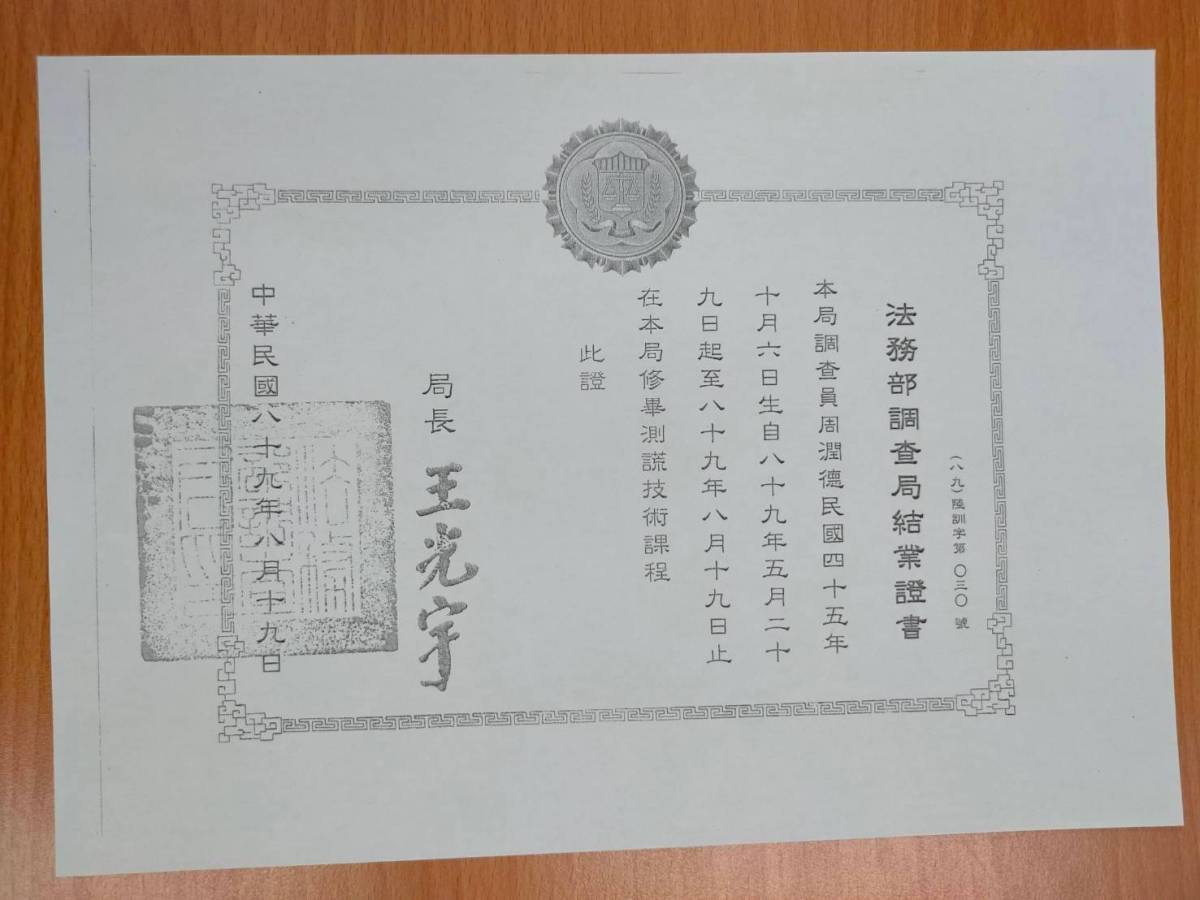 法務部調查局結業證書
(八九)陸訓字第〇三〇號
本局調查員周潤德民國四十五年
十月六日生自八十九年五月二十
九日起至八十九年八月十九日止
在本局修畢測謊技術課程
此證
局長 王光宇
中華民國八十九年八月十九日